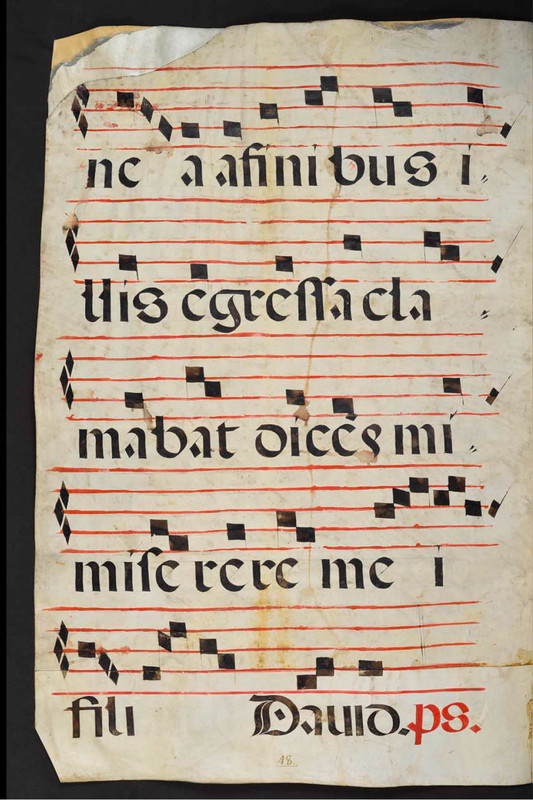 ne a a finibus i
llis egressa cla
mabat dices mi
misere rere me i
fili Dauid. ps.
48.